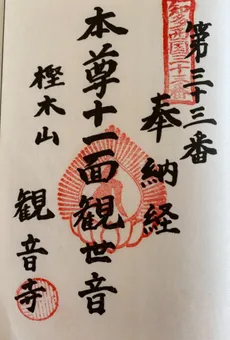 知多西国三十三番
第三十三番
奉納経
本尊十一面観世音
樫木山
観音寺